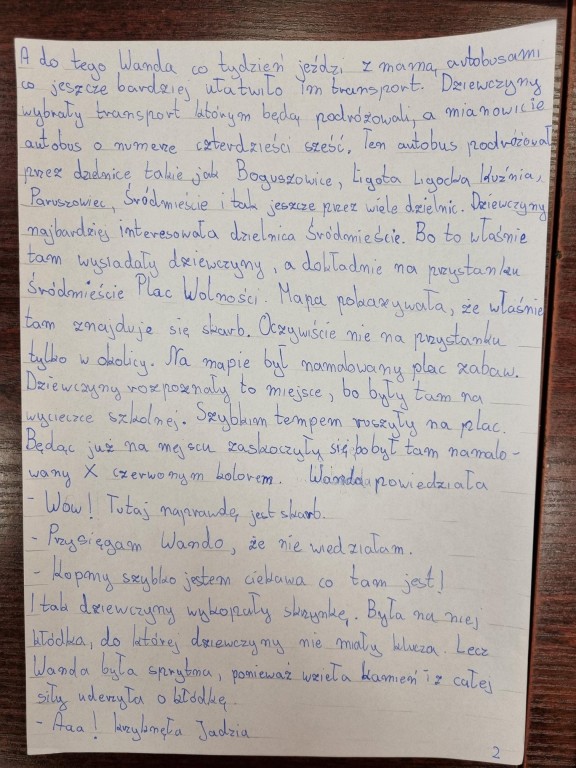 A do tego Wanda co tydzień jeździ z mamą autobusami
co jeszcze bardziej ułatwiło im transport. Dziewczyny
wybrały transport którym będą podróżowali, a mianowicie
autobus o numerze czterdzieści sześć. Ten autobus podróżował
przez dzielnice takie jak Boguszowice, Ligota Ligocka Kuźnia,
Paruszowiec, Śródmieście i tak jeszcze przez wiele dzielnic. Dziewczyny
najbardziej interesowała dzielnica Śródmieście. Bo to właśnie
tam wysiadały dziewczyny, a dokładnie na przystanku
Śródmieście Plac Wolności. Mapa pokazywała, że właśnie
tam znajduje się skarb. Oczywiście nie na przystanku
tylko w okolicy. Na mapie był namalowany plac zabaw.
Dziewczyny rozpoznały to miejsce, bo były tam na
wycieczce szkolnej. Szybkim tempem ruszyły na plac.
Będąc już na mejscu zaskoczyły się, bo był tam namalo-
wany X czerwonym kolorem. Wanda powiedziała
- Wow! Tutaj naprawdę jest skarb.
- Przysięgam Wando, że nie wiedziałam.
- Kopmy szybko jestem ciekawa co tam jest!
I tak dziewczyny wykopały skrzynkę. Była na niej
kłódka, do której dziewczyny nie miały klucza. Lecz
Wanda była sprytna, ponieważ wzieła kamień i z całej
siły uderzyła o kłódkę.
- Aaa! krzyknęła Jadzia
2